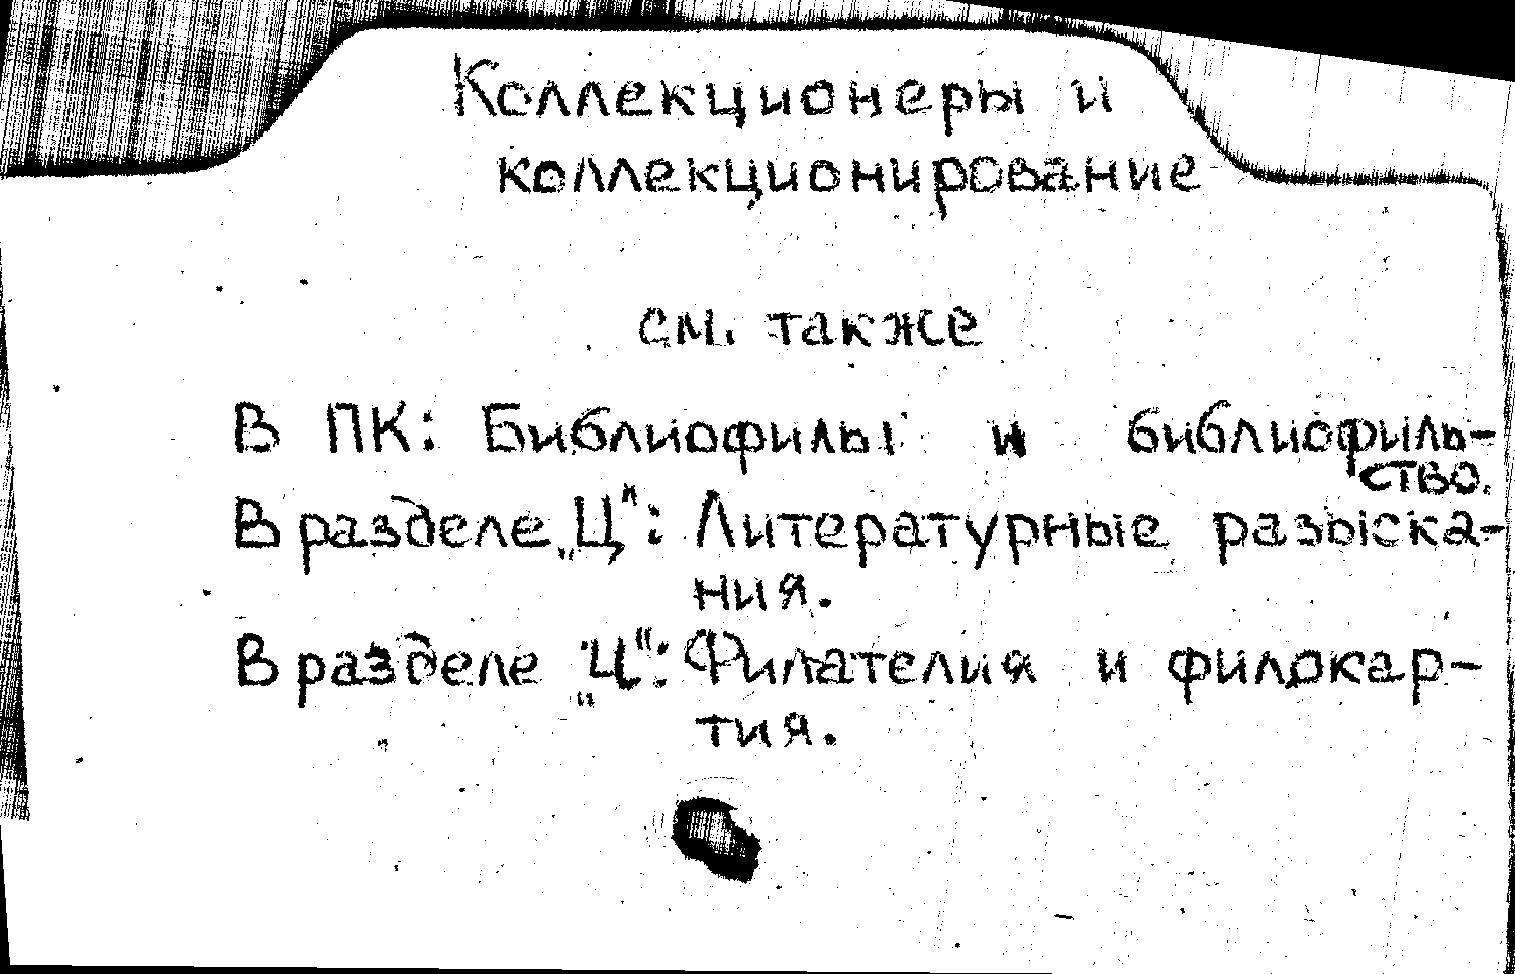 Коллекционеры и
коллекционирование
см. также
В ПК: Библиофилы и библиофиль-
ство.
В разделе „Ц": Литературные разыска-
ния.
В разделе „Ц": Филателия и филокар-
тия.